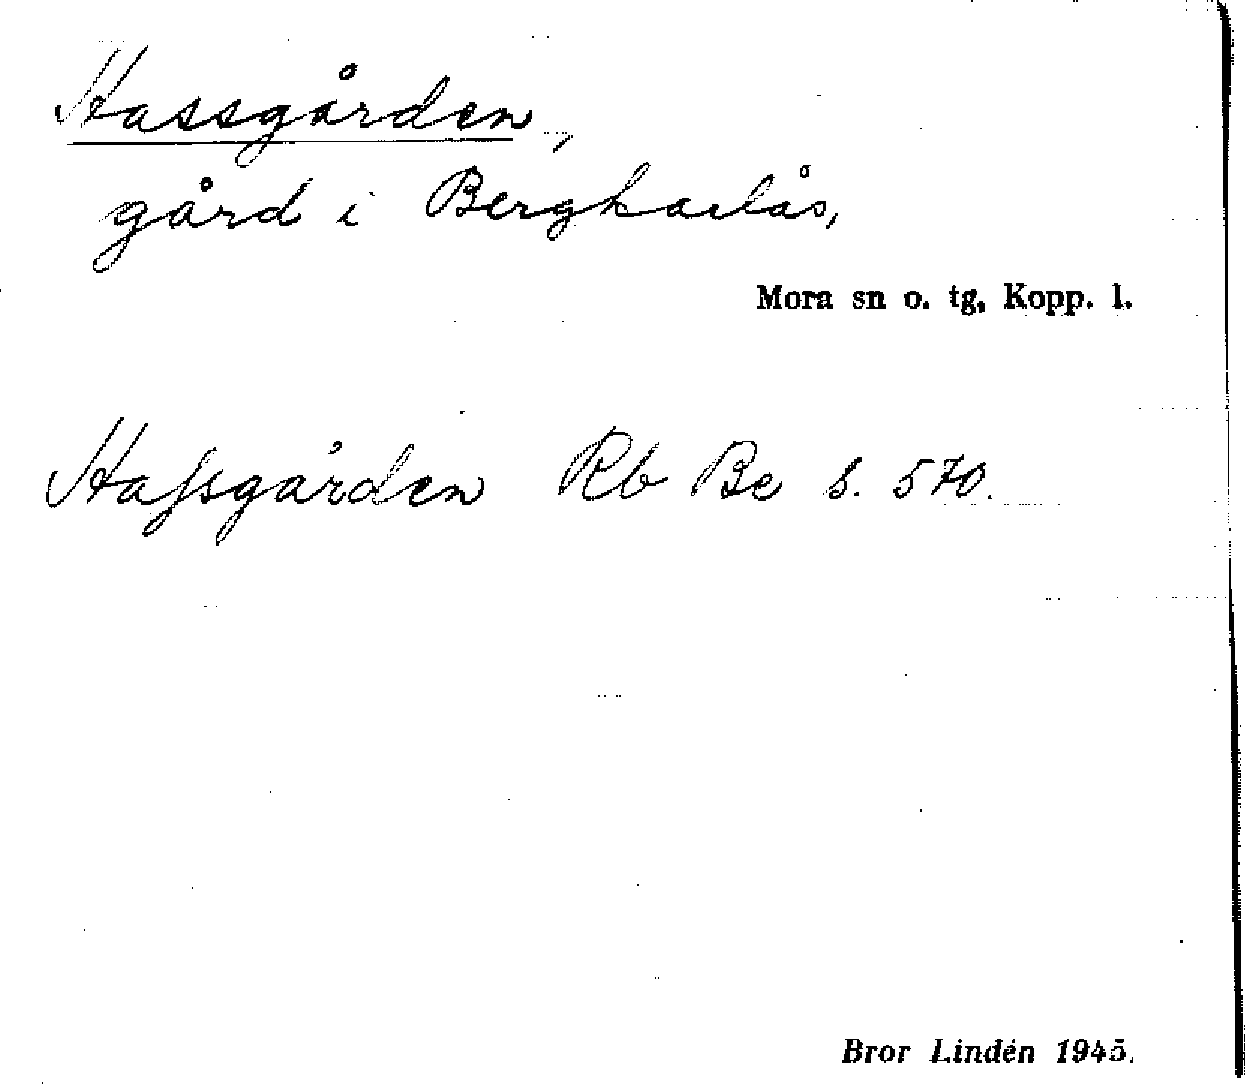 Hassgården,
gård i Bergkarlås,
Mora sn o. tg, Kopp. l.
Haſsgården Rb Be s. 570.
Bror Lindén 1945.